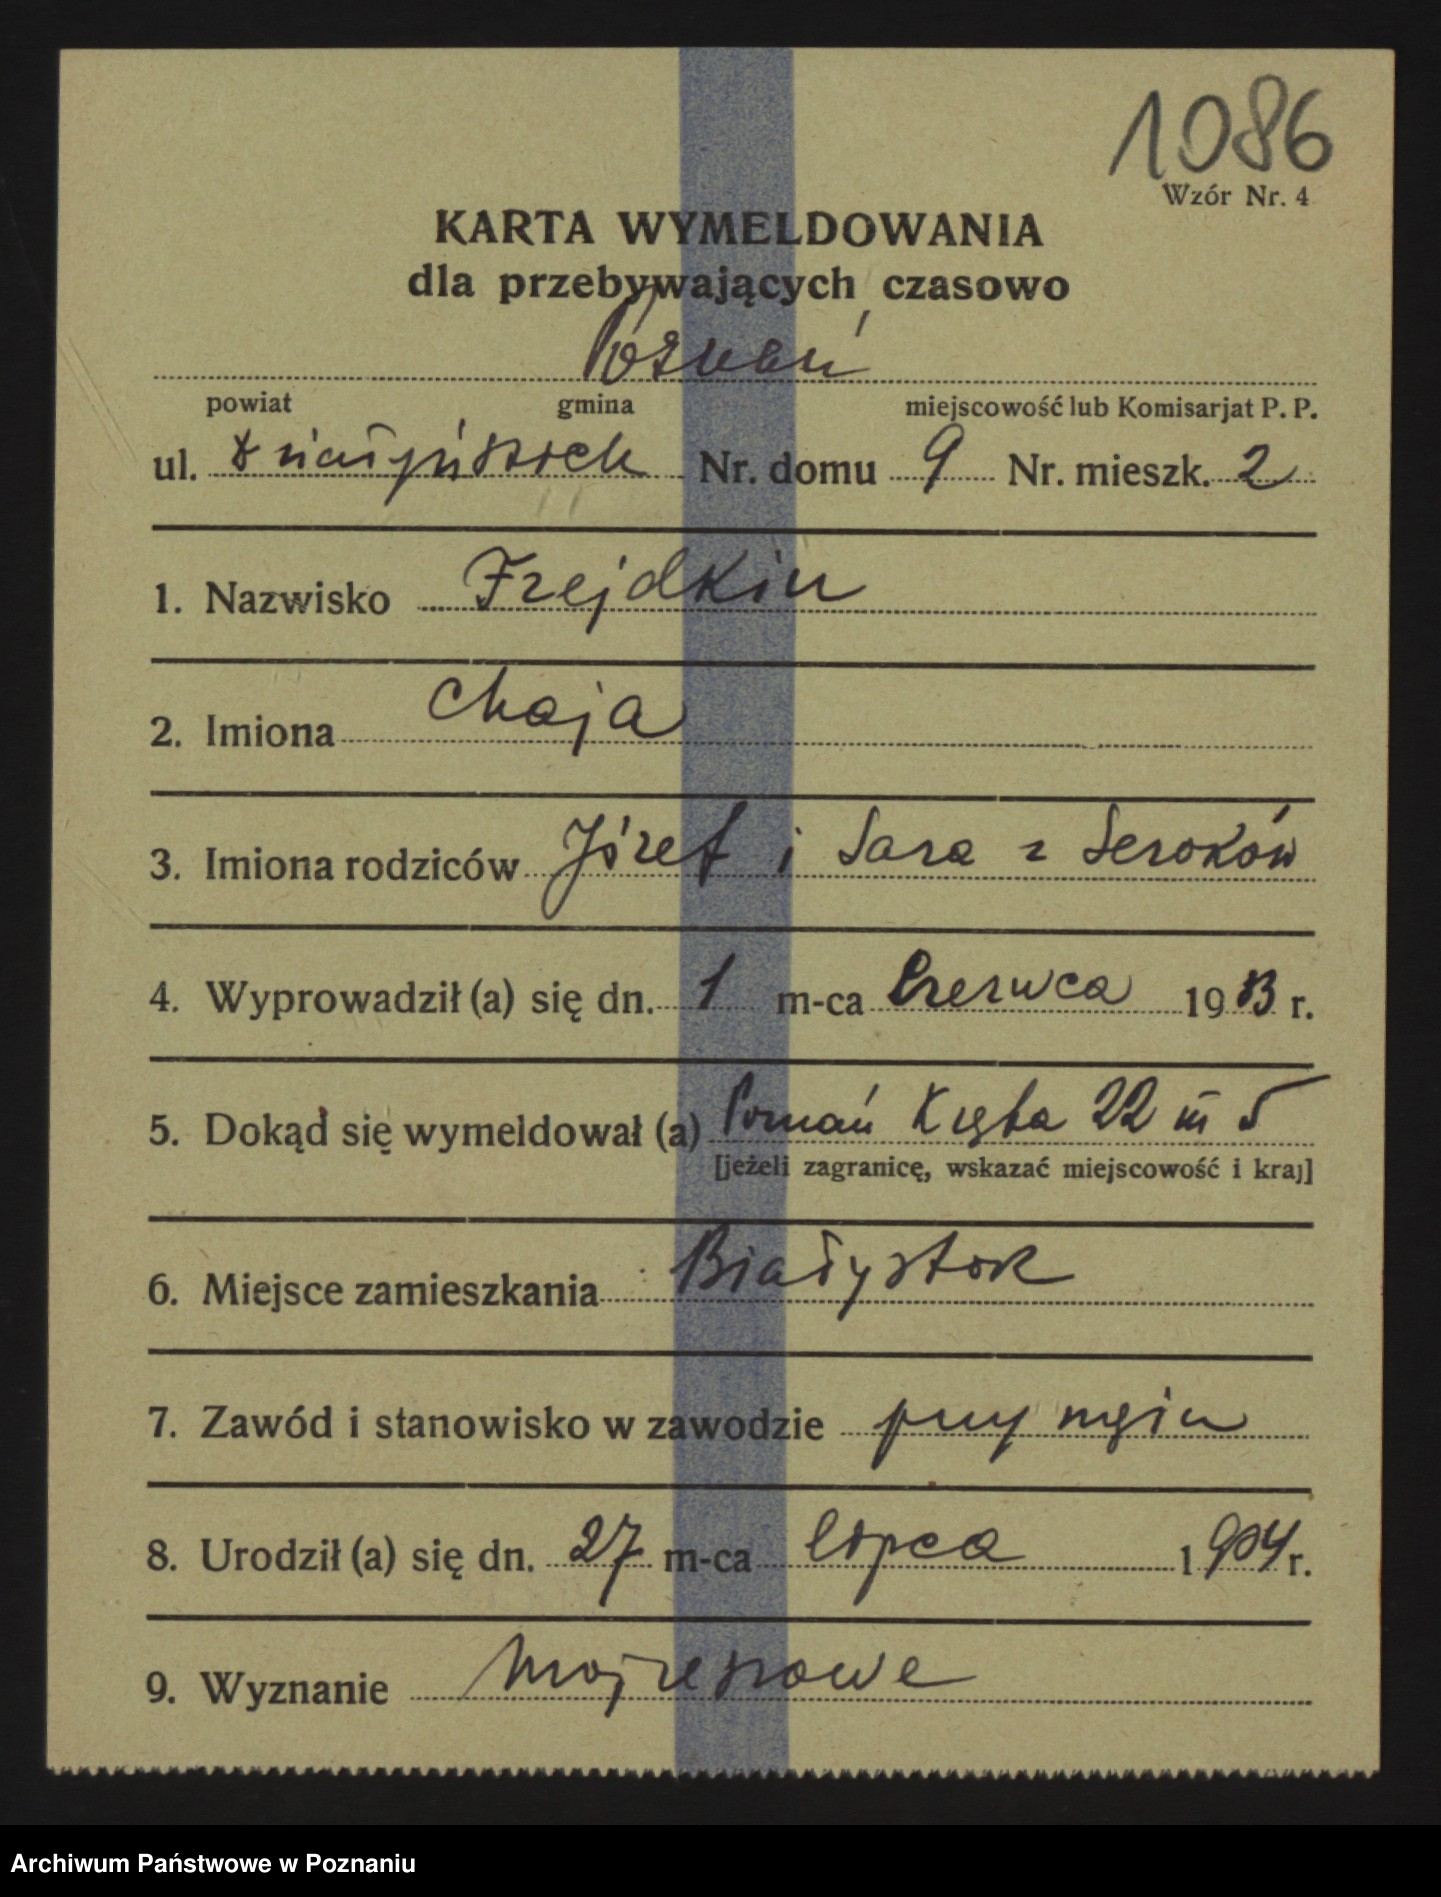 1086
Wzór Nr. 4
KARTA WYMELDOWANIA
dla przebywających czasowo
Poznań
powiat gmina miejscowość lub Komisarjat P. P.
ul. Działyńskich Nr. domu 9 Nr. mieszk. 2
1. Nazwisko Frejdkin
2. Imiona Chaja
3. Imiona rodziców Józef i Sara z Seroków
4. Wyprowadził (a) się dn. 1 m-ca Czerwca 19 r.
5. Dokąd się wymeldował (a) Poznań 22 m 5
[jeżeli zagranicę, wskazać miejscowość i kraj]
6. Miejsce zamieszkania Białystok
7. Zawód i stanowisko w zawodzie przy mężu
8. Urodził (a) się dn. 27 m-ca lipca 1904 r.
9. Wyznanie mojżeszowe
Archiwum Państwowe w Poznaniu